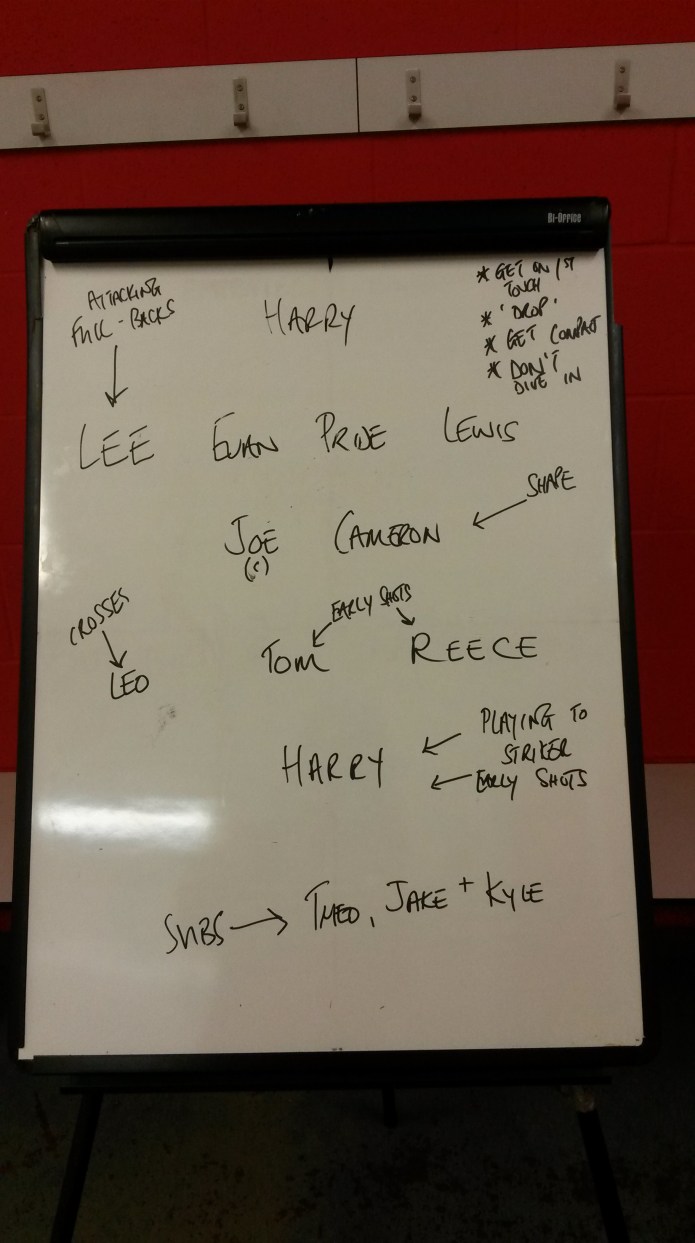 Bi-Office
ATTACKING
FULL-BACKS
HARRY
* GET ON 1ST
TOUCH
* 'DROP'
* GET COMPACT
* DON'T
DIVE IN
LEE EVAN PRIDE LEWIS
JOE CAMERON
(C)
SHAPE
CROSSES
LEO
EARLY SHOTS
TOM REECE
HARRY
PLAYING TO
STRIKER
EARLY SHOTS
SUBS → THEO, JAKE + KYLE